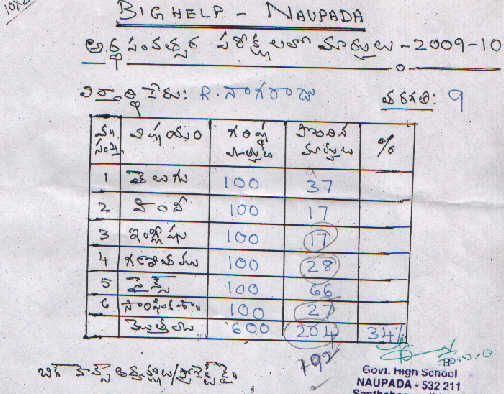 BIG HELP - NAUPADA
అర్థ సంవత్సర పరీక్షలలో మార్కులు - 2009-10
విద్యార్థి పేరు: R. నాగరాజు తరగతి: 9
సంఖ్య విషయం గరిష్ట మార్కులు పొందిన మార్కులు %
1 తెలుగు 100 37
2 హిందీ 100 17
3 ఇంగ్లీషు 100 17
4 గణితము 100 28
5 సైన్స్ 100 66
6 సాంఘికశా 100 27
మొత్తము 600 204 34%
192
బిగ్ హెల్ప్
Govt. High School
NAUPADA - 532 211